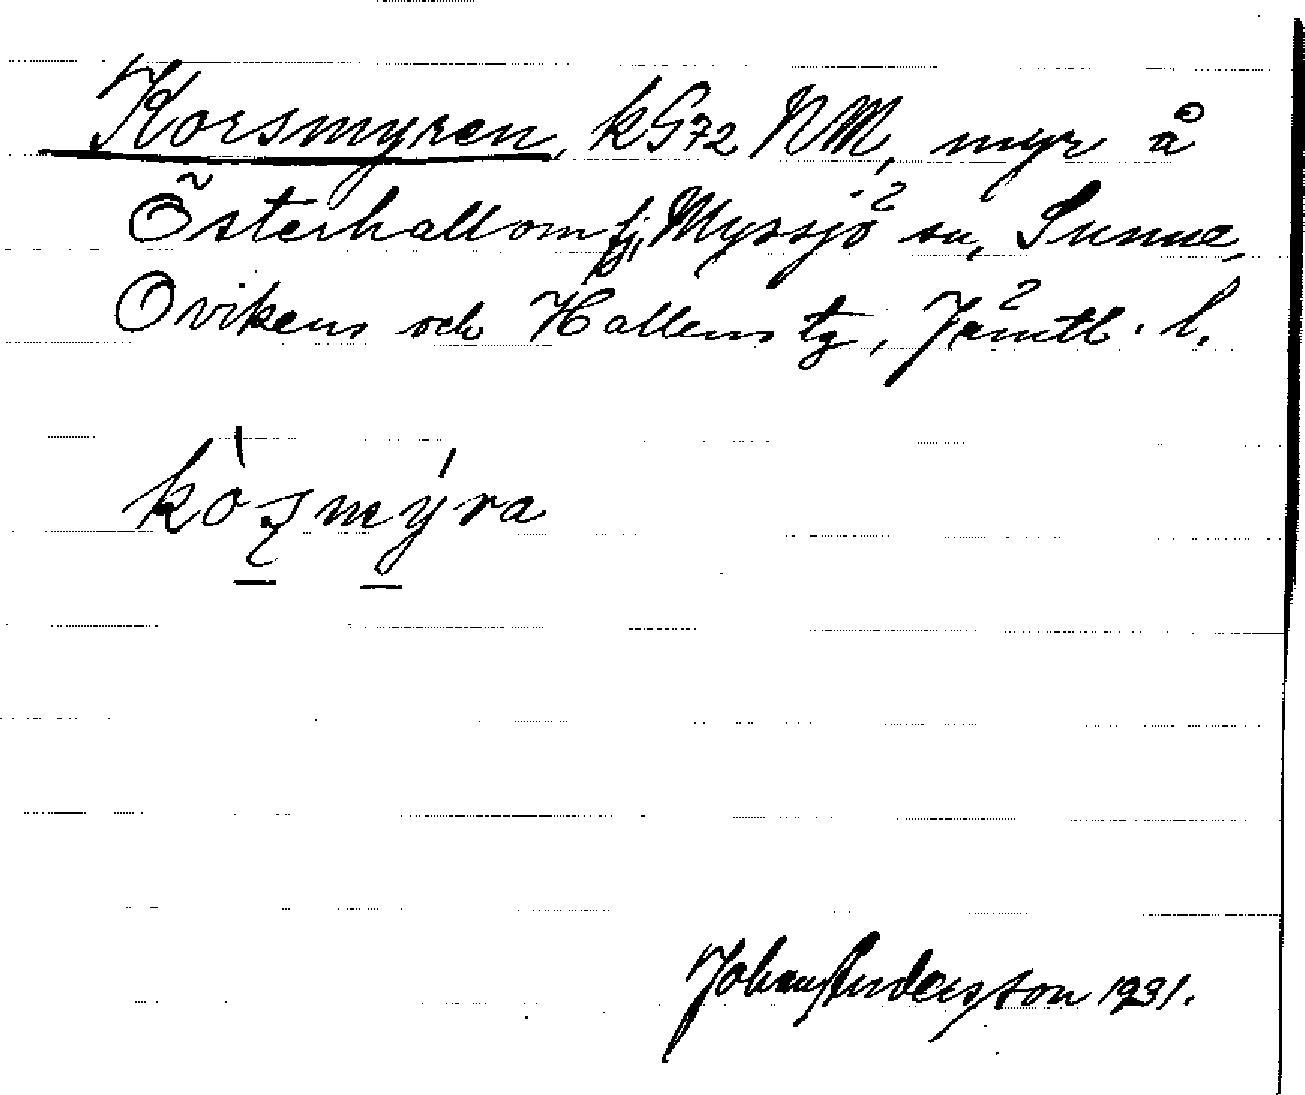 Korsmyren, kG72 NM, myr å
Österhallom i Myssjö sn, Sunne,
Ovikens och Hallens tg, Jämtl. l.
kòʂmýra
Johan Andersson 1931.